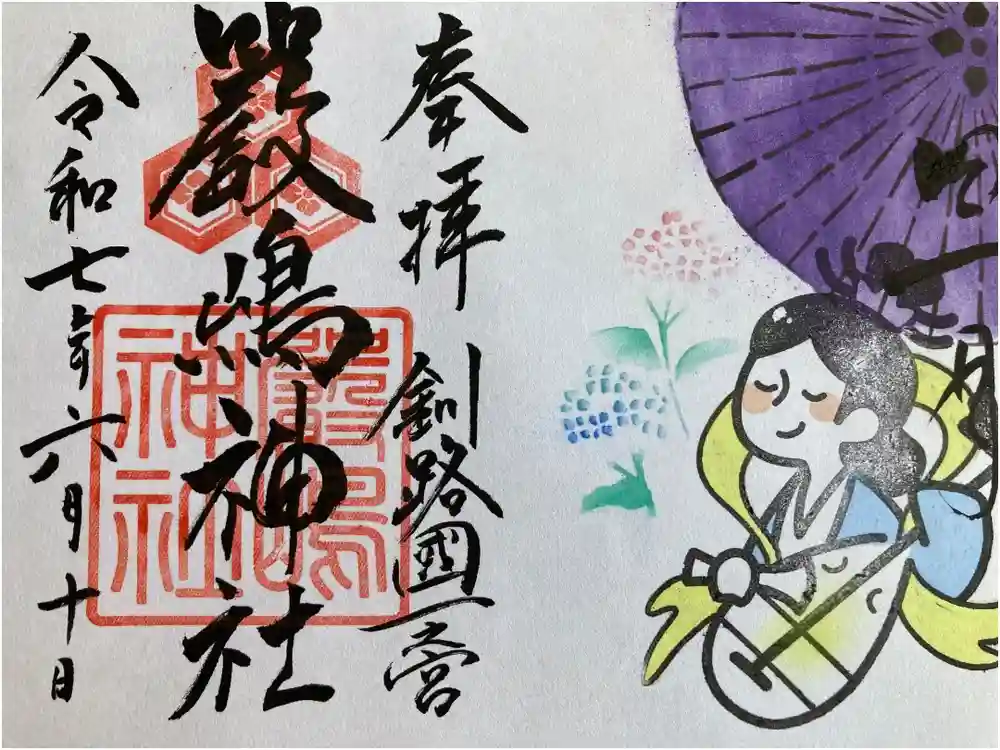 奉拝
釧路國一之宮
嚴嶋神社
嚴嶋
神社
令和七年六月十日